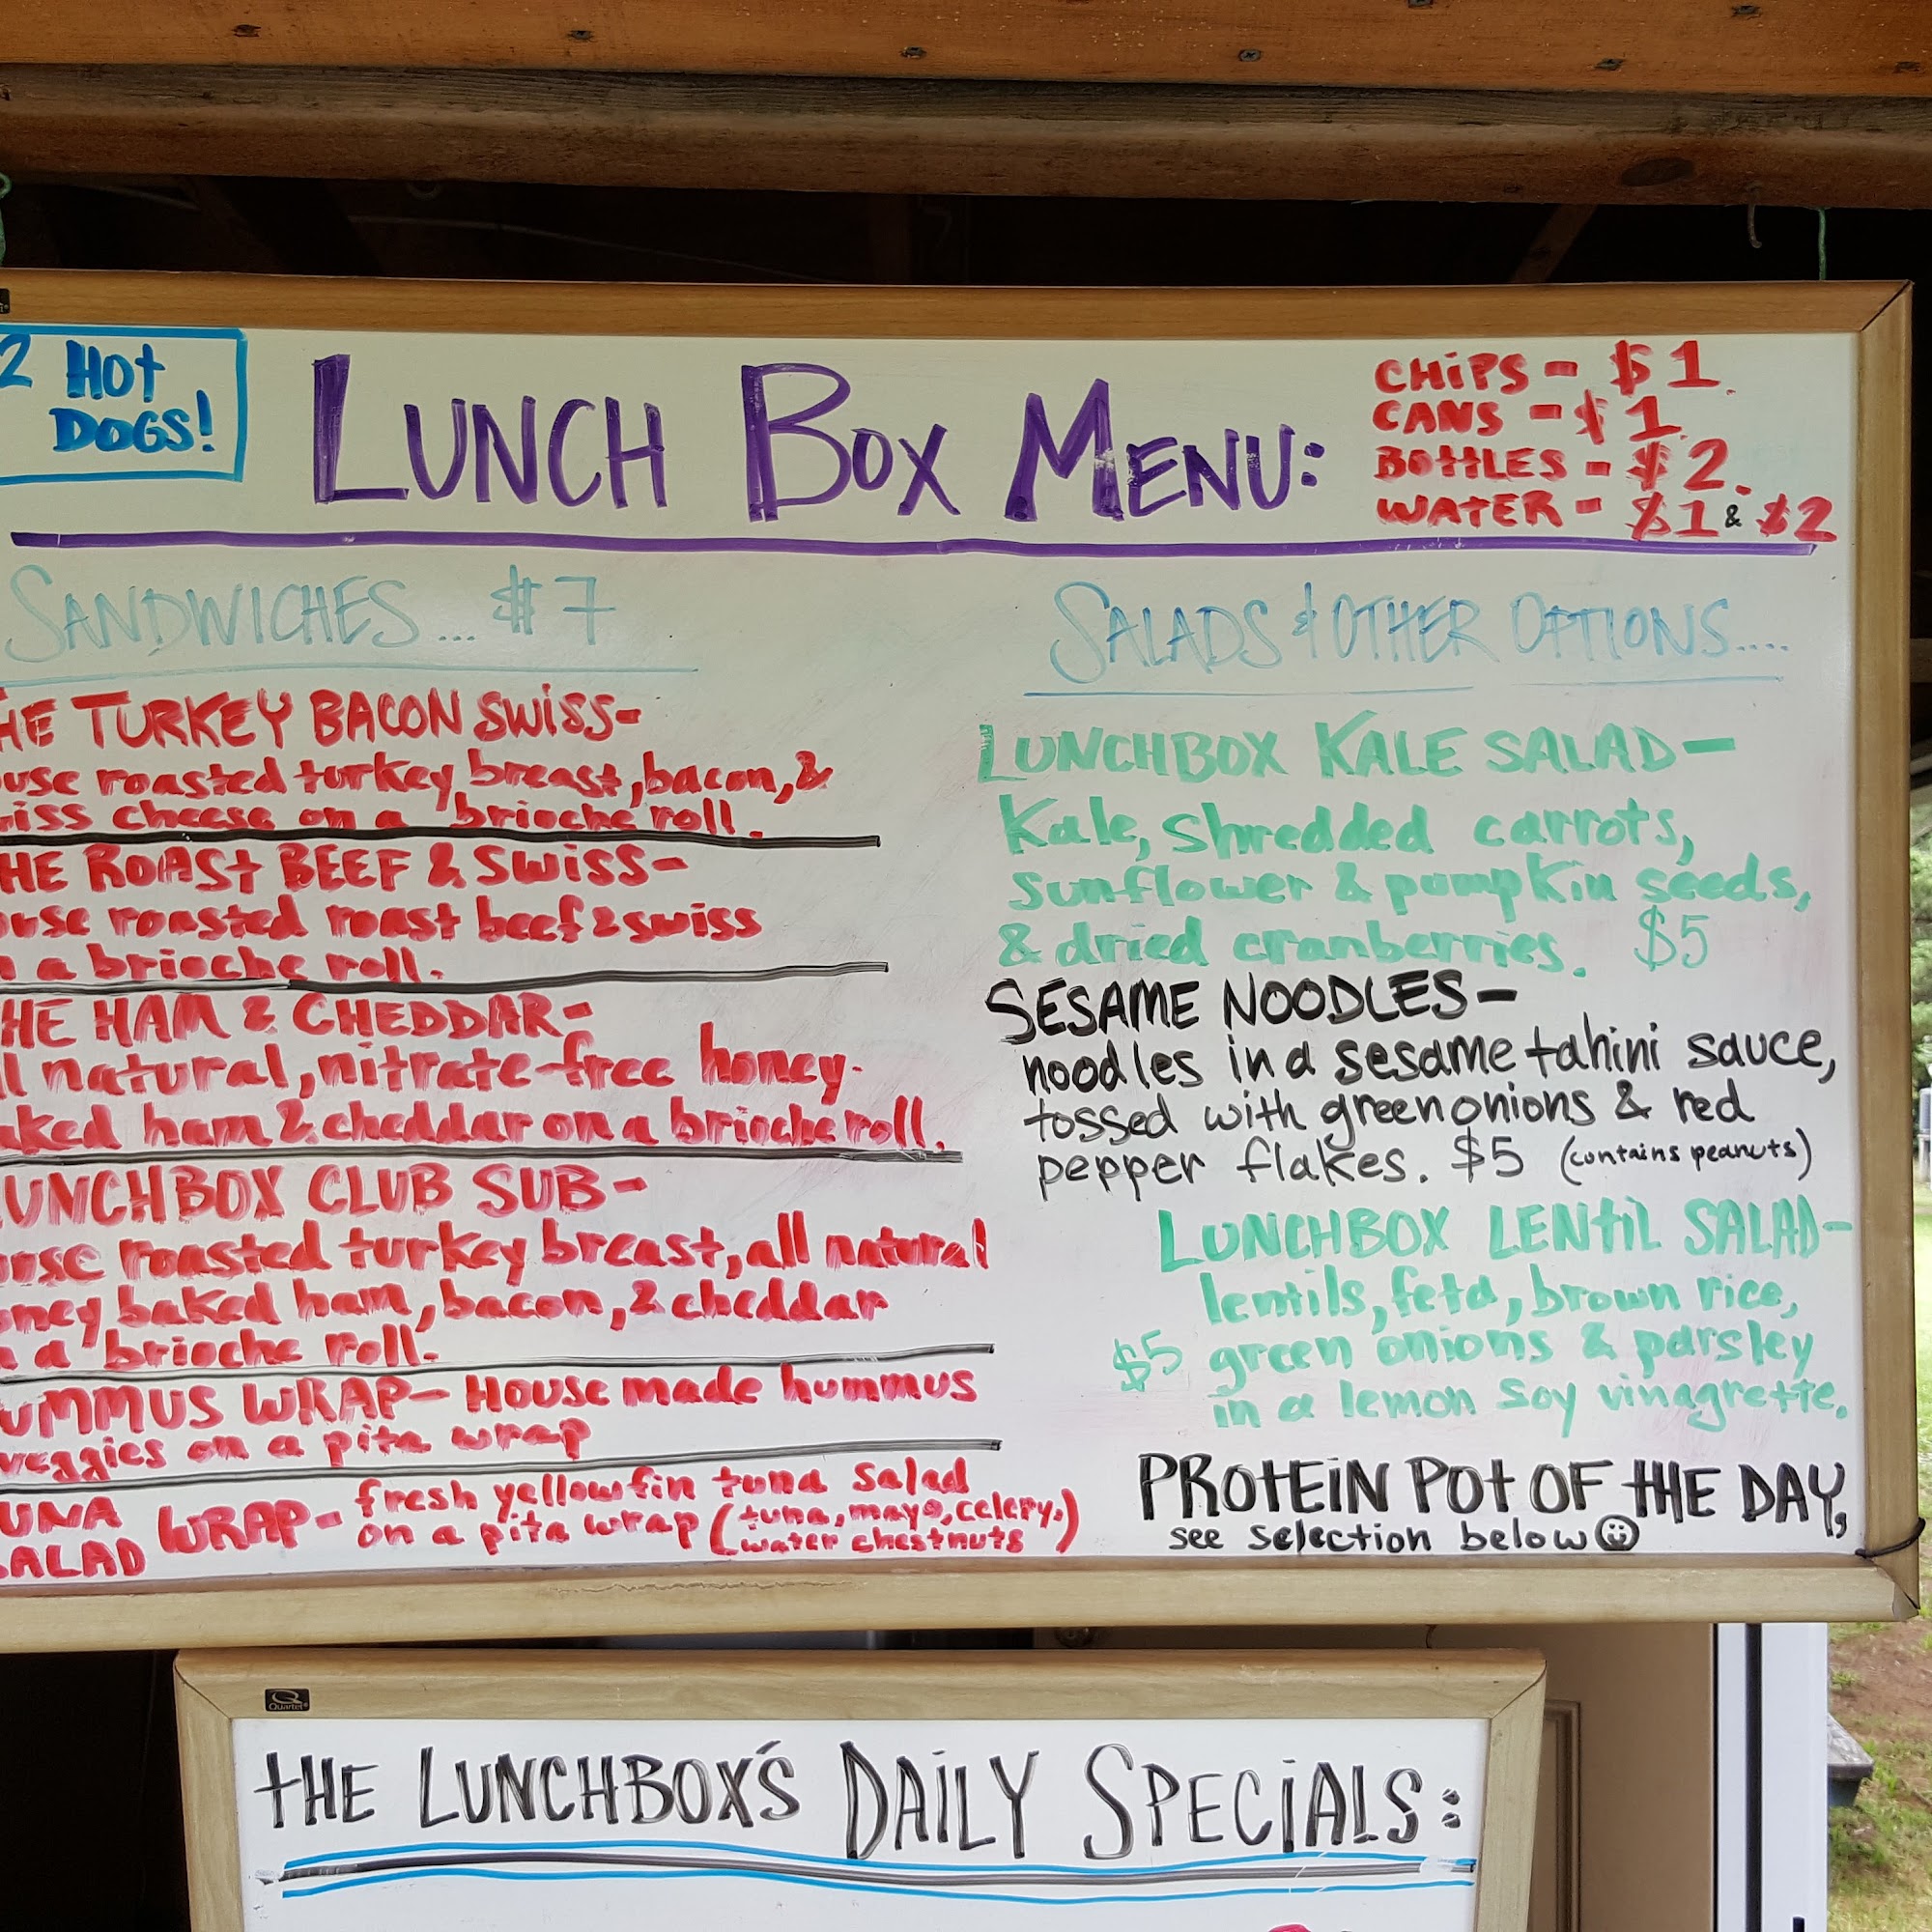 2 HOT
DOGS!
LUNCH BOX MENU:
CHiPS - $1.
CANS - $1.
BOTTLES - $2.
WATER - $1 & $2
SANDWICHES... $7
HE TURKEY BACON SWiSS-
use roasted turkey breast, bacon, &
iss cheese on a brioche roll.
HE ROAST BEEF & SWiSS-
use roasted roast beef & swiss
n a brioche roll.
HE HAM & CHEDDAR-
ll natural, nitrate-free honey-
aked ham & cheddar on a brioche roll.
UNCHBOX CLUB SUB-
use roasted turkey breast, all natural
oney baked ham, bacon, & cheddar
n a brioche roll.
UMMUS WRAP- HOUSE made hummus
veggies on a pita wrap
UNA
SALAD WRAP- fresh yellowfin tuna salad
on a pita wrap (tuna, mayo, celery,
water chestnuts)
SALADS & OTHER OPTIONS....
LUNCHBOX KALE SALAD-
Kale, shredded carrots,
sunflower & pumpkin seeds,
& dried cranberries. $5
SESAME NOODLES-
noodles in a sesame tahini sauce,
tossed with green onions & red
pepper flakes. $5 (contains peanuts)
LUNCHBOX LENTiL SALAD-
lentils, feta, brown rice,
$5 green onions & parsley
in a lemon soy vinagrette.
PROTEiN POT OF THE DAY,
see selection below
Quartet
THE LUNCHBOX'S DAiLY SPECiALS: